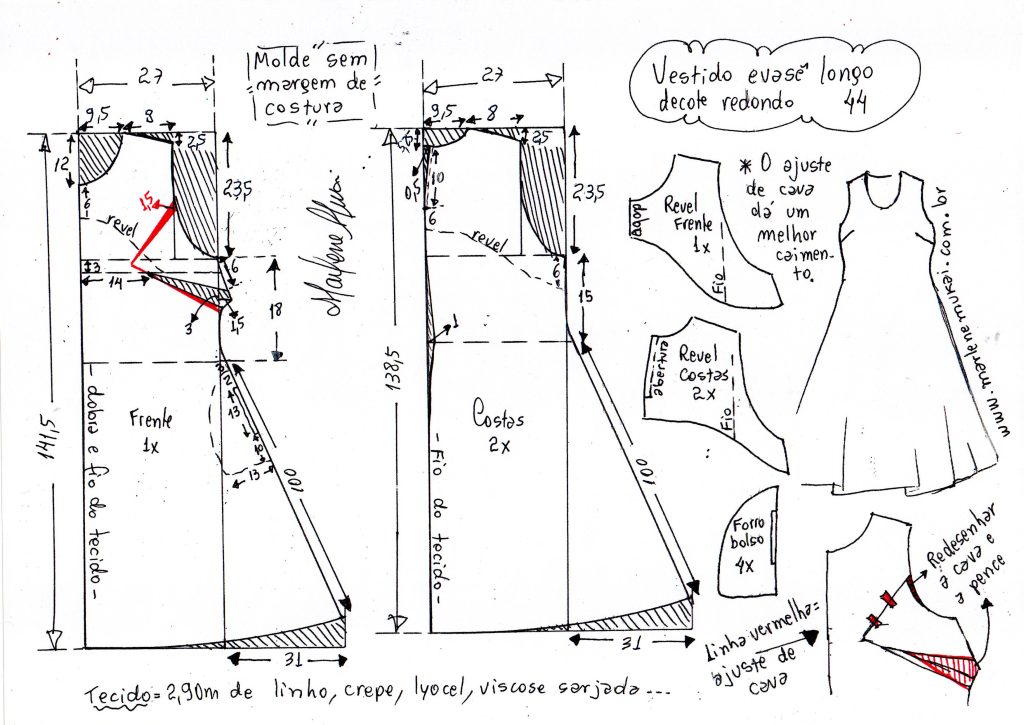 27
Molde sem
margem de
costura
27
Vestido evasê longo
decote redondo 44
9,5
8
2,5
12
23,5
6
1,5
revel
3
14
6
3
1,5
18
141,5
Frente
1x
- dobra e fio do tecido -
3
2
4
13
10
13
100
31
Marlene Mukai
9,5
8
2,5
0,5
10
6
23,5
revel
6
15
1
138,5
Costas
2x
- Fio do tecido -
100
31
dobra
Revel
Frente
1x
Fio
* O ajuste
de cava
dá um
melhor
caimen-
to.
abertura
Revel
Costas
2x
Fio
www.marlenemukai.com.br
Forro
bolso
4x
Redesenhar
a cava e
a pence
Linha vermelha=
ajuste de
cava
Tecido = 2,90m de linho, crepe, lyocel, viscose sarjada...